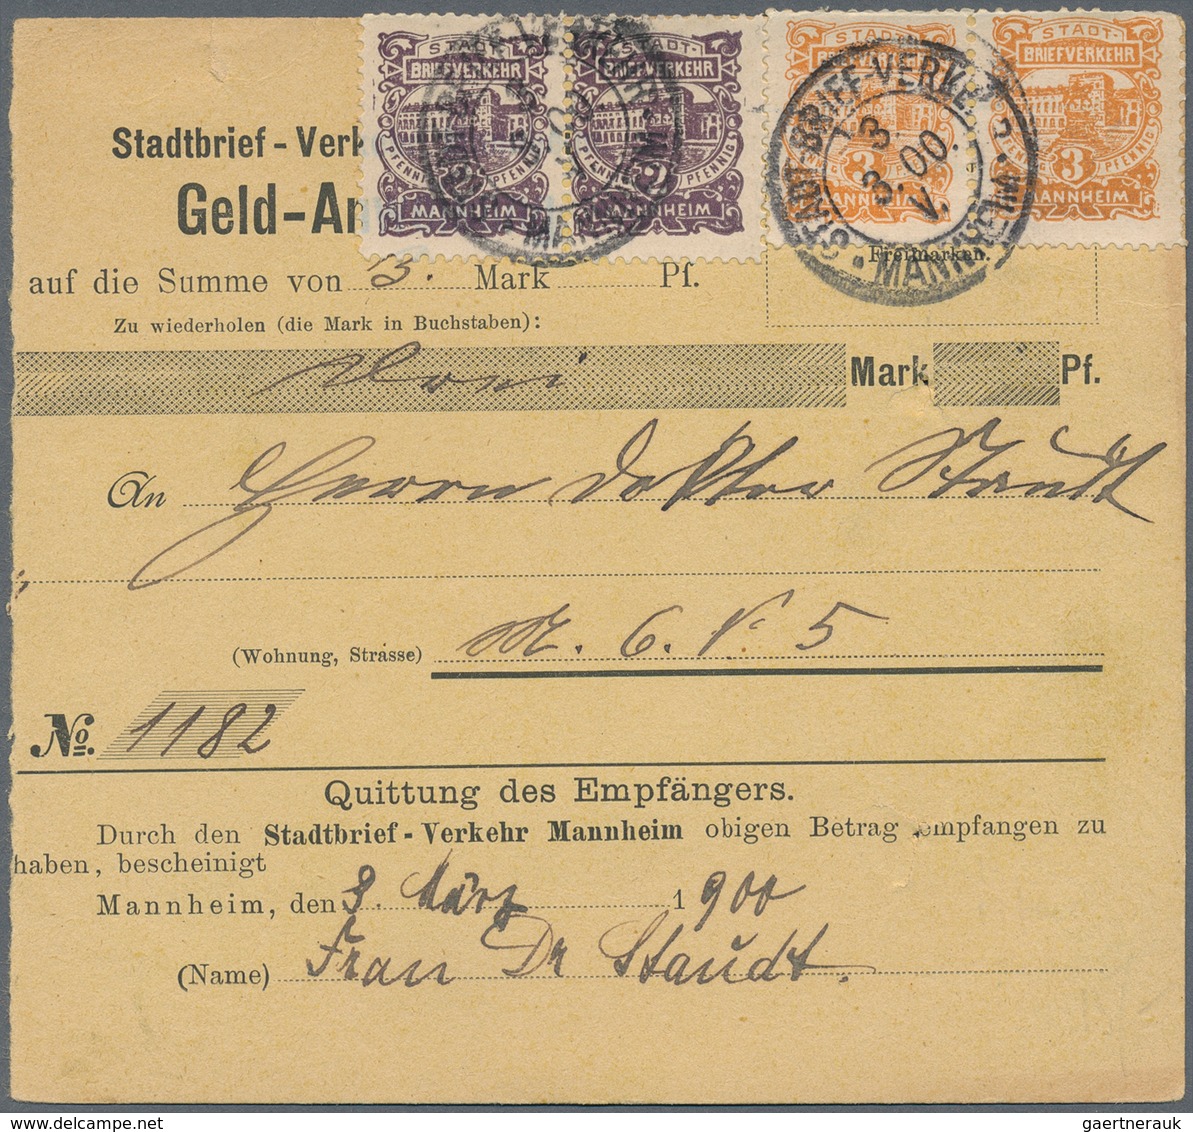 STADT- STADT- STADT- STADT-
BRIEFVERKEHR BRIEFVERKEHR BRIEFVERKEHR
PFENNIG PFENNIG PFENNIG
2 3 3
MANNHEIM MANNHEIM MANNHEIM MANNHEIM
STADT-BRIEF-VERKE
3 3
00.
V.
MANNHEIM
Stadtbrief-Verk
Geld-An
Freimarken.
auf die Summe von 3. Mark Pf.
Zu wiederholen (die Mark in Buchstaben):
Mark Pf.
An Herrn Doktor Staudt
(Wohnung, Strasse) M. 6. N: 5
No. 1182
Quittung des Empfängers.
Durch den Stadtbrief-Verkehr Mannheim obigen Betrag empfangen zu
haben, bescheinigt
Mannheim, den 3. März 1900
(Name) Frau Dr Staudt.
gaertnerauk